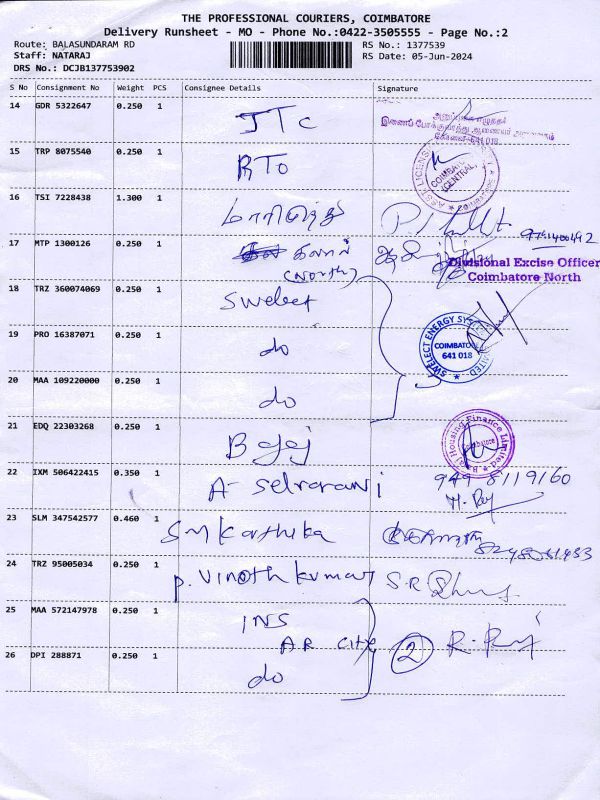 THE PROFESSIONAL COURIERS, COIMBATORE
Delivery Runsheet - MO - Phone No.:0422-3505555 - Page No.:2
Route: BALASUNDARAM RD RS No.: 1377539
Staff: NATARAJ RS Date: 05-Jun-2024
DRS No.: DCJB137753902
S No Consignment No Weight PCS Consignee Details Signature
14 GDR 5322647 0.250 1 JTC
641 018
15 TRP 8075540 0.250 1 RTO
COIMBATORE (CENTRAL)
16 TSI 7228438 1.300 1 மாரிமுத்து
17 MTP 1300126 0.250 1 கலால்
(North)
Divisional Excise Officer
Coimbatore North
18 TRZ 360074069 0.250 1 Swelect
19 PRO 16387071 0.250 1 do
SWELECT ENERGY SYSTEMS LIMITED
COIMBATORE
641 018
20 MAA 109220000 0.250 1 do
21 EDQ 22303268 0.250 1 Bajaj
Bajaj Housing Finance Limited
Coimbatore
22 IXM 506422415 0.350 1 A- Selvarani 949 8119160
23 SLM 347542577 0.460 1 SM Karthika
24 TRZ 95005034 0.250 1 P. Vinoth kumar S.R
25 MAA 572147978 0.250 1 INS
AR City 2 R. Raj
26 DPI 288871 0.250 1 do